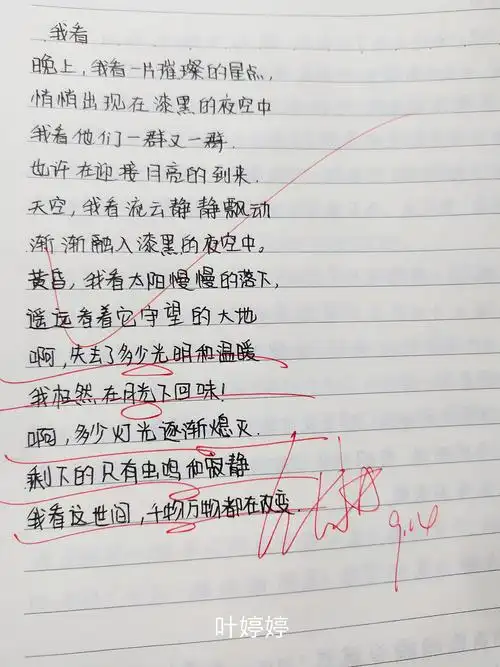 我看
晚上，我看一片璀璨的星点，
悄悄出现在漆黑的夜空中
我看他们一群又一群.
也许在迎接月亮的到来.
天空，我看流云静静飘动
渐渐融入漆黑的夜空中。
黄昏，我看太阳慢慢的落下，
遥远看着它守望的大地
啊，失去了多少光明和温暖
我枉然在月光下回味！
啊，多少灯光逐渐熄灭.
剩下的只有虫鸣和寂静
我看这世间，千物万物都在改变.
9.14
叶婷婷